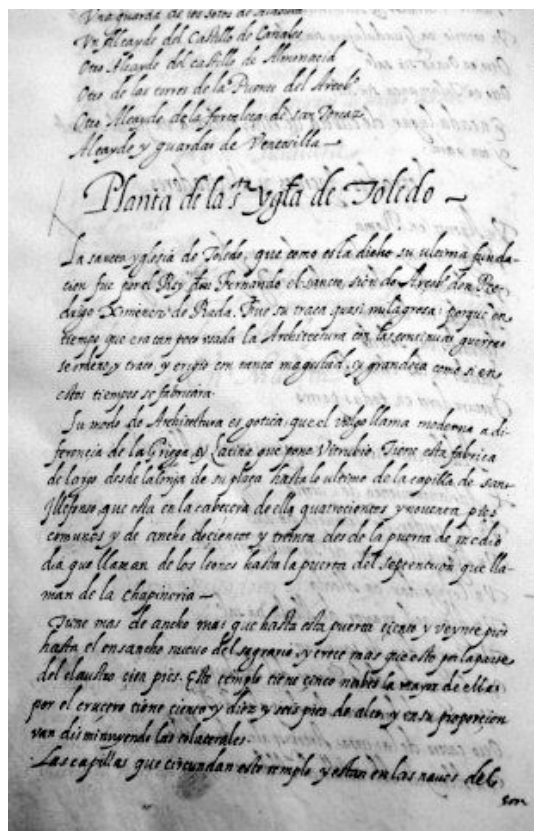 Una guarda de los sotos de
Un Alcayde del Castillo de Canales
Otro Alcayde del castillo de Almonacid
Otro de las torres de la Puente del Arcobpo
Otro Alcayde de la fortaleza de san Torcaz
Alcayde y guardas de Ventosilla
Planta de la sta yglia de Toledo
La sancta yglesia de Toledo, que como esta dicho su ultima funda-
cion fue por el Rey don Fernando el sancto, siendo Arcobpo don Ro-
drigo Ximenez de Rada. Fue su traca quasi milagrosa: porque en
tiempo que era tan poco usada la Architectura con las continuas guerras
se ordeno, y traco, y erigio con tanta magestad, y grandeza como si en
estos tiempos se fabricara.
Su modo de Architectura es gotica, que el vulgo llama moderna a di-
ferencia de la Griega, y Latina que pone Vitrubio. Tiene esta fabrica
de largo desde la lonja de su placa hasta lo ultimo de la capilla de san
Illefonso, que esta en la cabecera de ella quatrocientos y noventa pies
comunes y de ancho docientos y treinta desde la puerta de medio
dia que llaman de los leones hasta la puerta del septentrion que lla-
man de la chapineria
Tiene mas de ancho mas que hasta esta puerta ciento y veynte pies
hasta el ensancho nuevo del sagrario, y crece mas que esto por la parte
del claustro cien pies. Este templo tiene cinco naves la mayor de ellas
por el crucero tiene ciento y diez y seis pies de alto, y en su proporcion
van disminuyendo las colaterales.
Las capillas que circundan este templo, y estan en las naves del
son